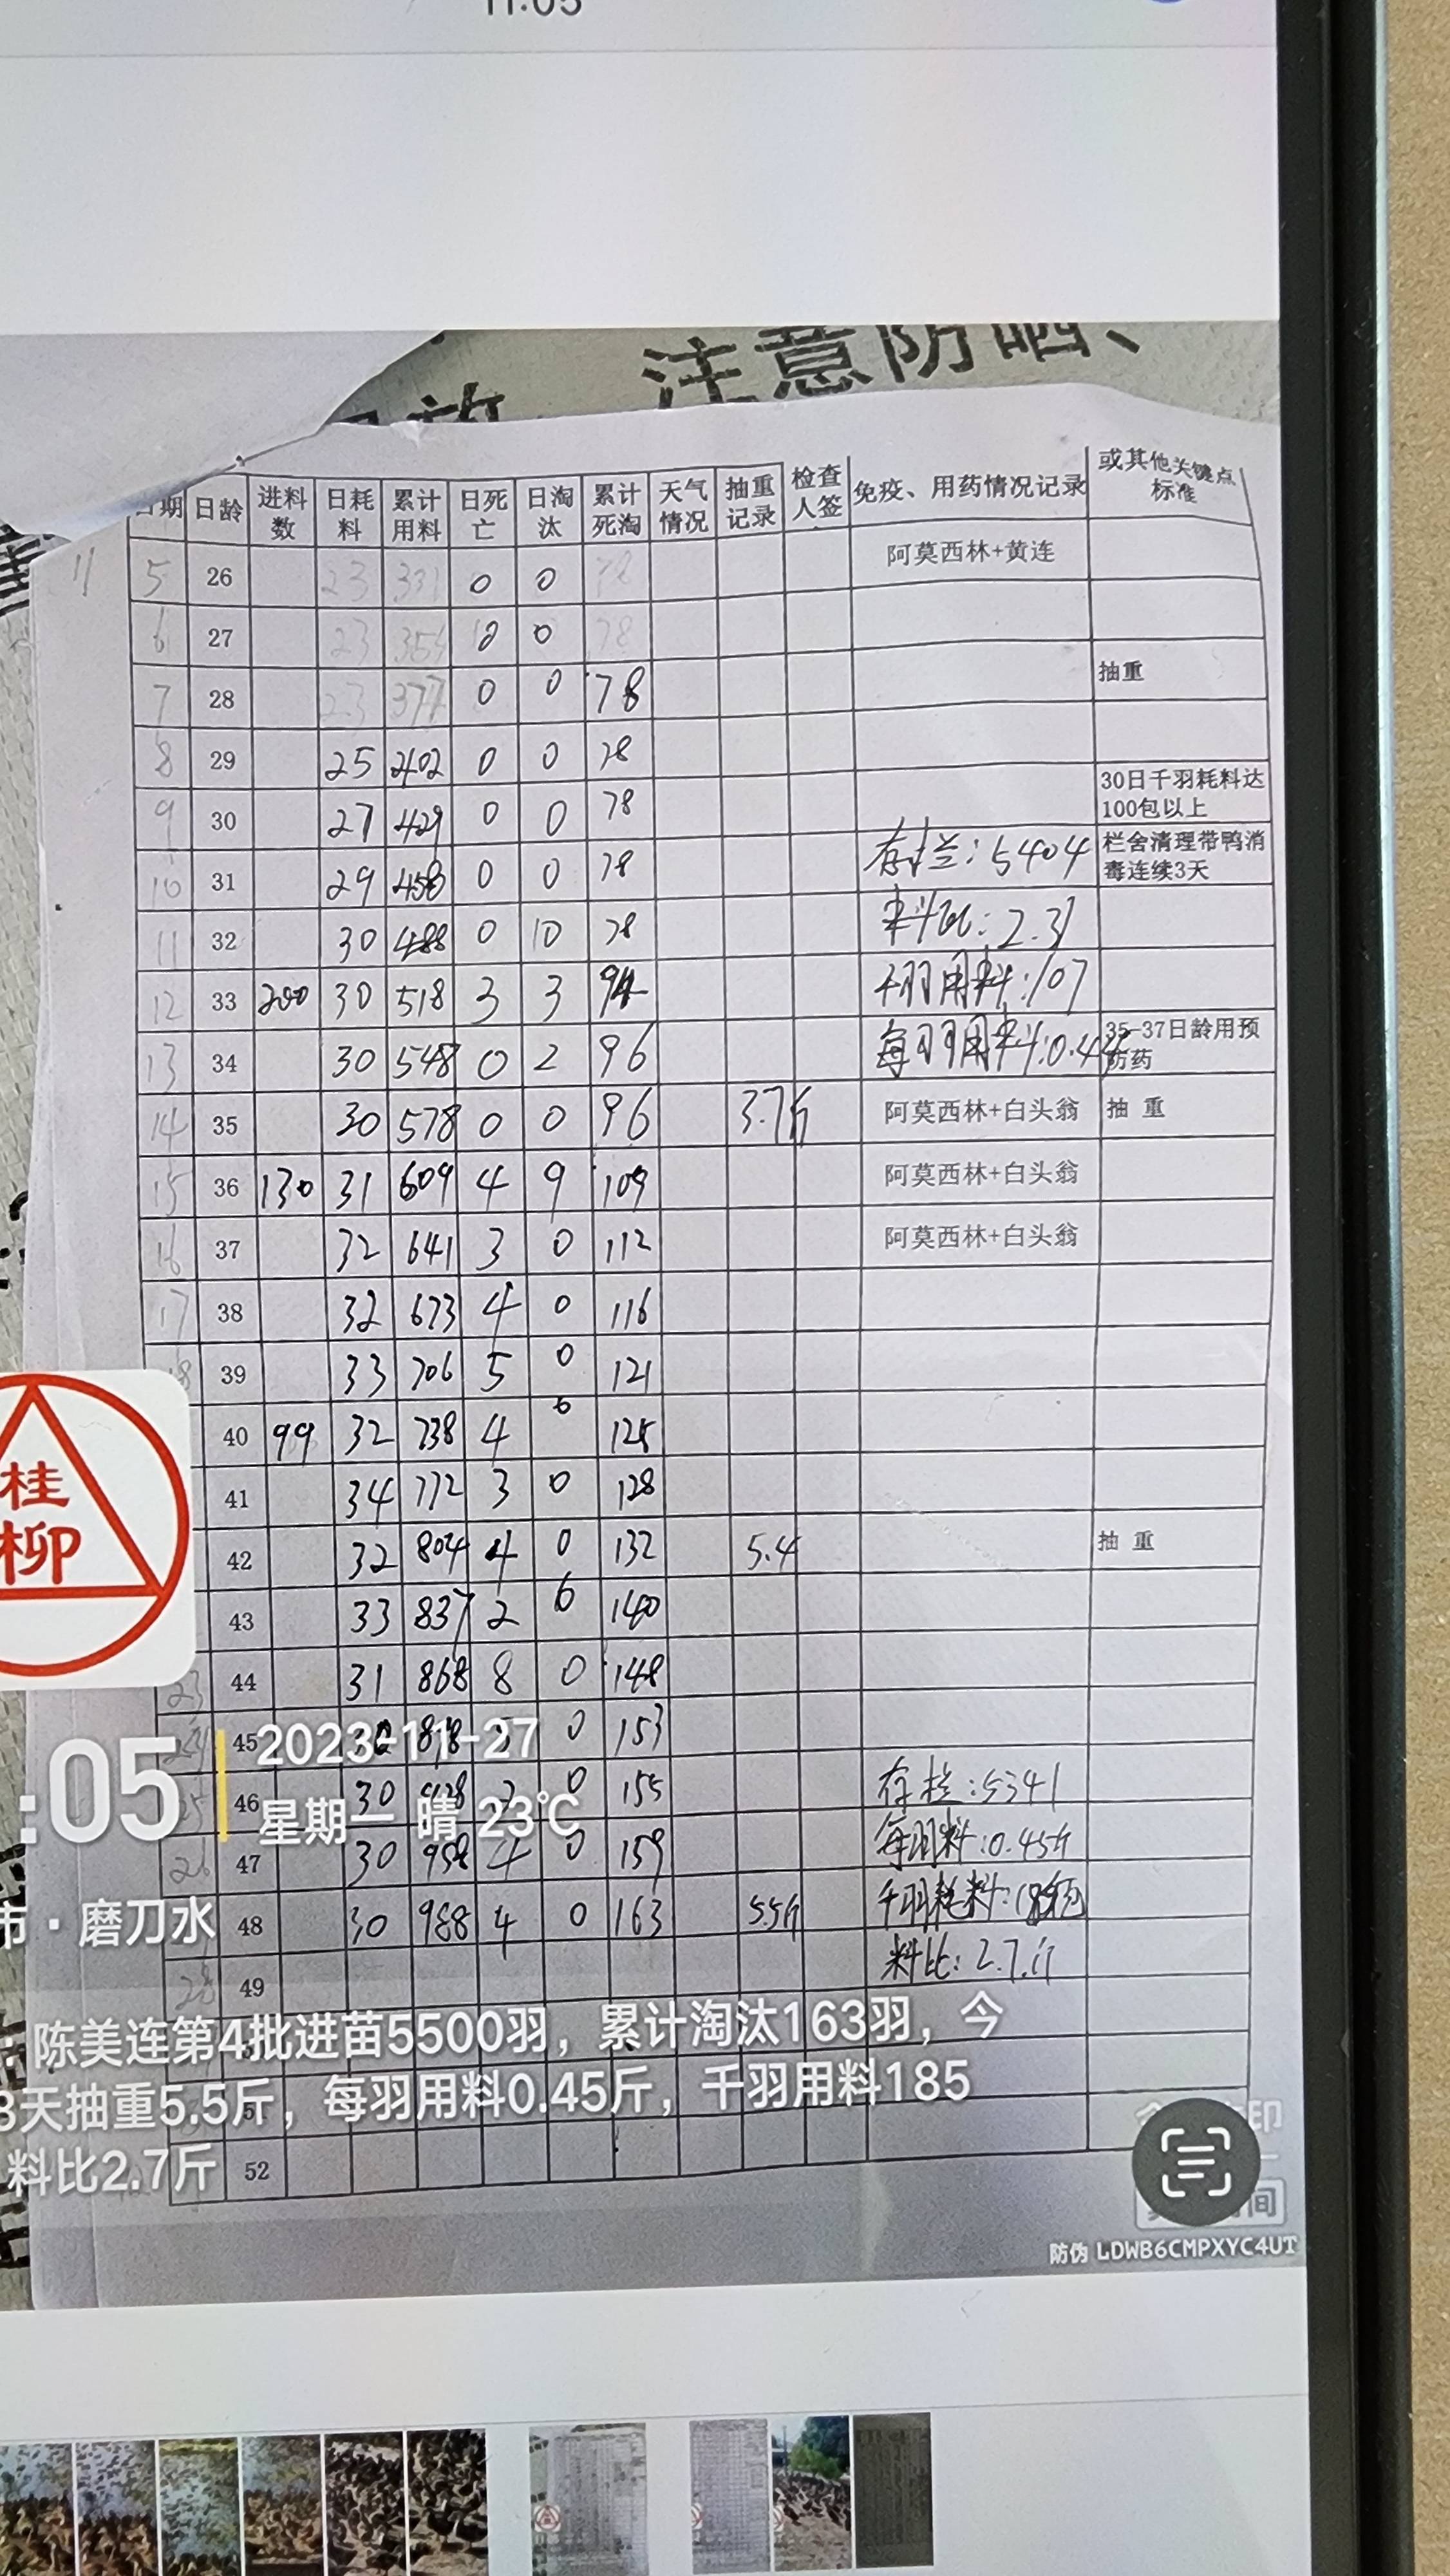 11:05
注意防晒、
日期 日龄 进料数 日耗料 累计用料 日死亡 日淘汰 累计死淘 天气情况 抽重记录 检查人签 免疫、用药情况记录 或其他关键点标准
11 5 26 23 331 0 0 78 阿莫西林+黄连
6 27 23 354 0 0 78
7 28 23 377 0 0 78 抽重
8 29 25 402 0 0 78
9 30 27 429 0 0 78 30日千羽耗料达100包以上
10 31 29 458 0 0 78 存栏:5404 栏舍清理带鸭消毒连续3天
11 32 30 488 0 10 78 料比:2.31
12 33 200 30 518 3 3 94 千羽用料:107
13 34 30 548 0 2 96 每羽用料:0.44 35-37日龄用预防药
14 35 30 578 0 0 96 3.7斤 阿莫西林+白头翁 抽 重
15 36 130 31 609 4 9 109 阿莫西林+白头翁
16 37 32 641 3 0 112 阿莫西林+白头翁
17 38 32 673 4 0 116
18 39 33 706 5 0 121
40 99 32 738 4 0 125
41 34 772 3 0 128
42 32 804 4 0 132 5.4 抽 重
43 33 837 2 6 140
23 44 31 868 8 0 148
24 45 898 0 153
25 46 30 928 2 0 155 存栏:5341
26 47 30 958 4 0 159 每羽料:0.45斤
48 30 988 4 0 163 5.5斤 千羽耗料:
28 49 料比:2.7斤
52
桂
柳
:05
2023-11-27
星期一 晴 23℃
市·磨刀水
: 陈美连第4批进苗5500羽，累计淘汰163羽，今
8天抽重5.5斤，每羽用料0.45斤，千羽用料185
料比2.7斤
防伪 LDWB6CMPXYC4UT